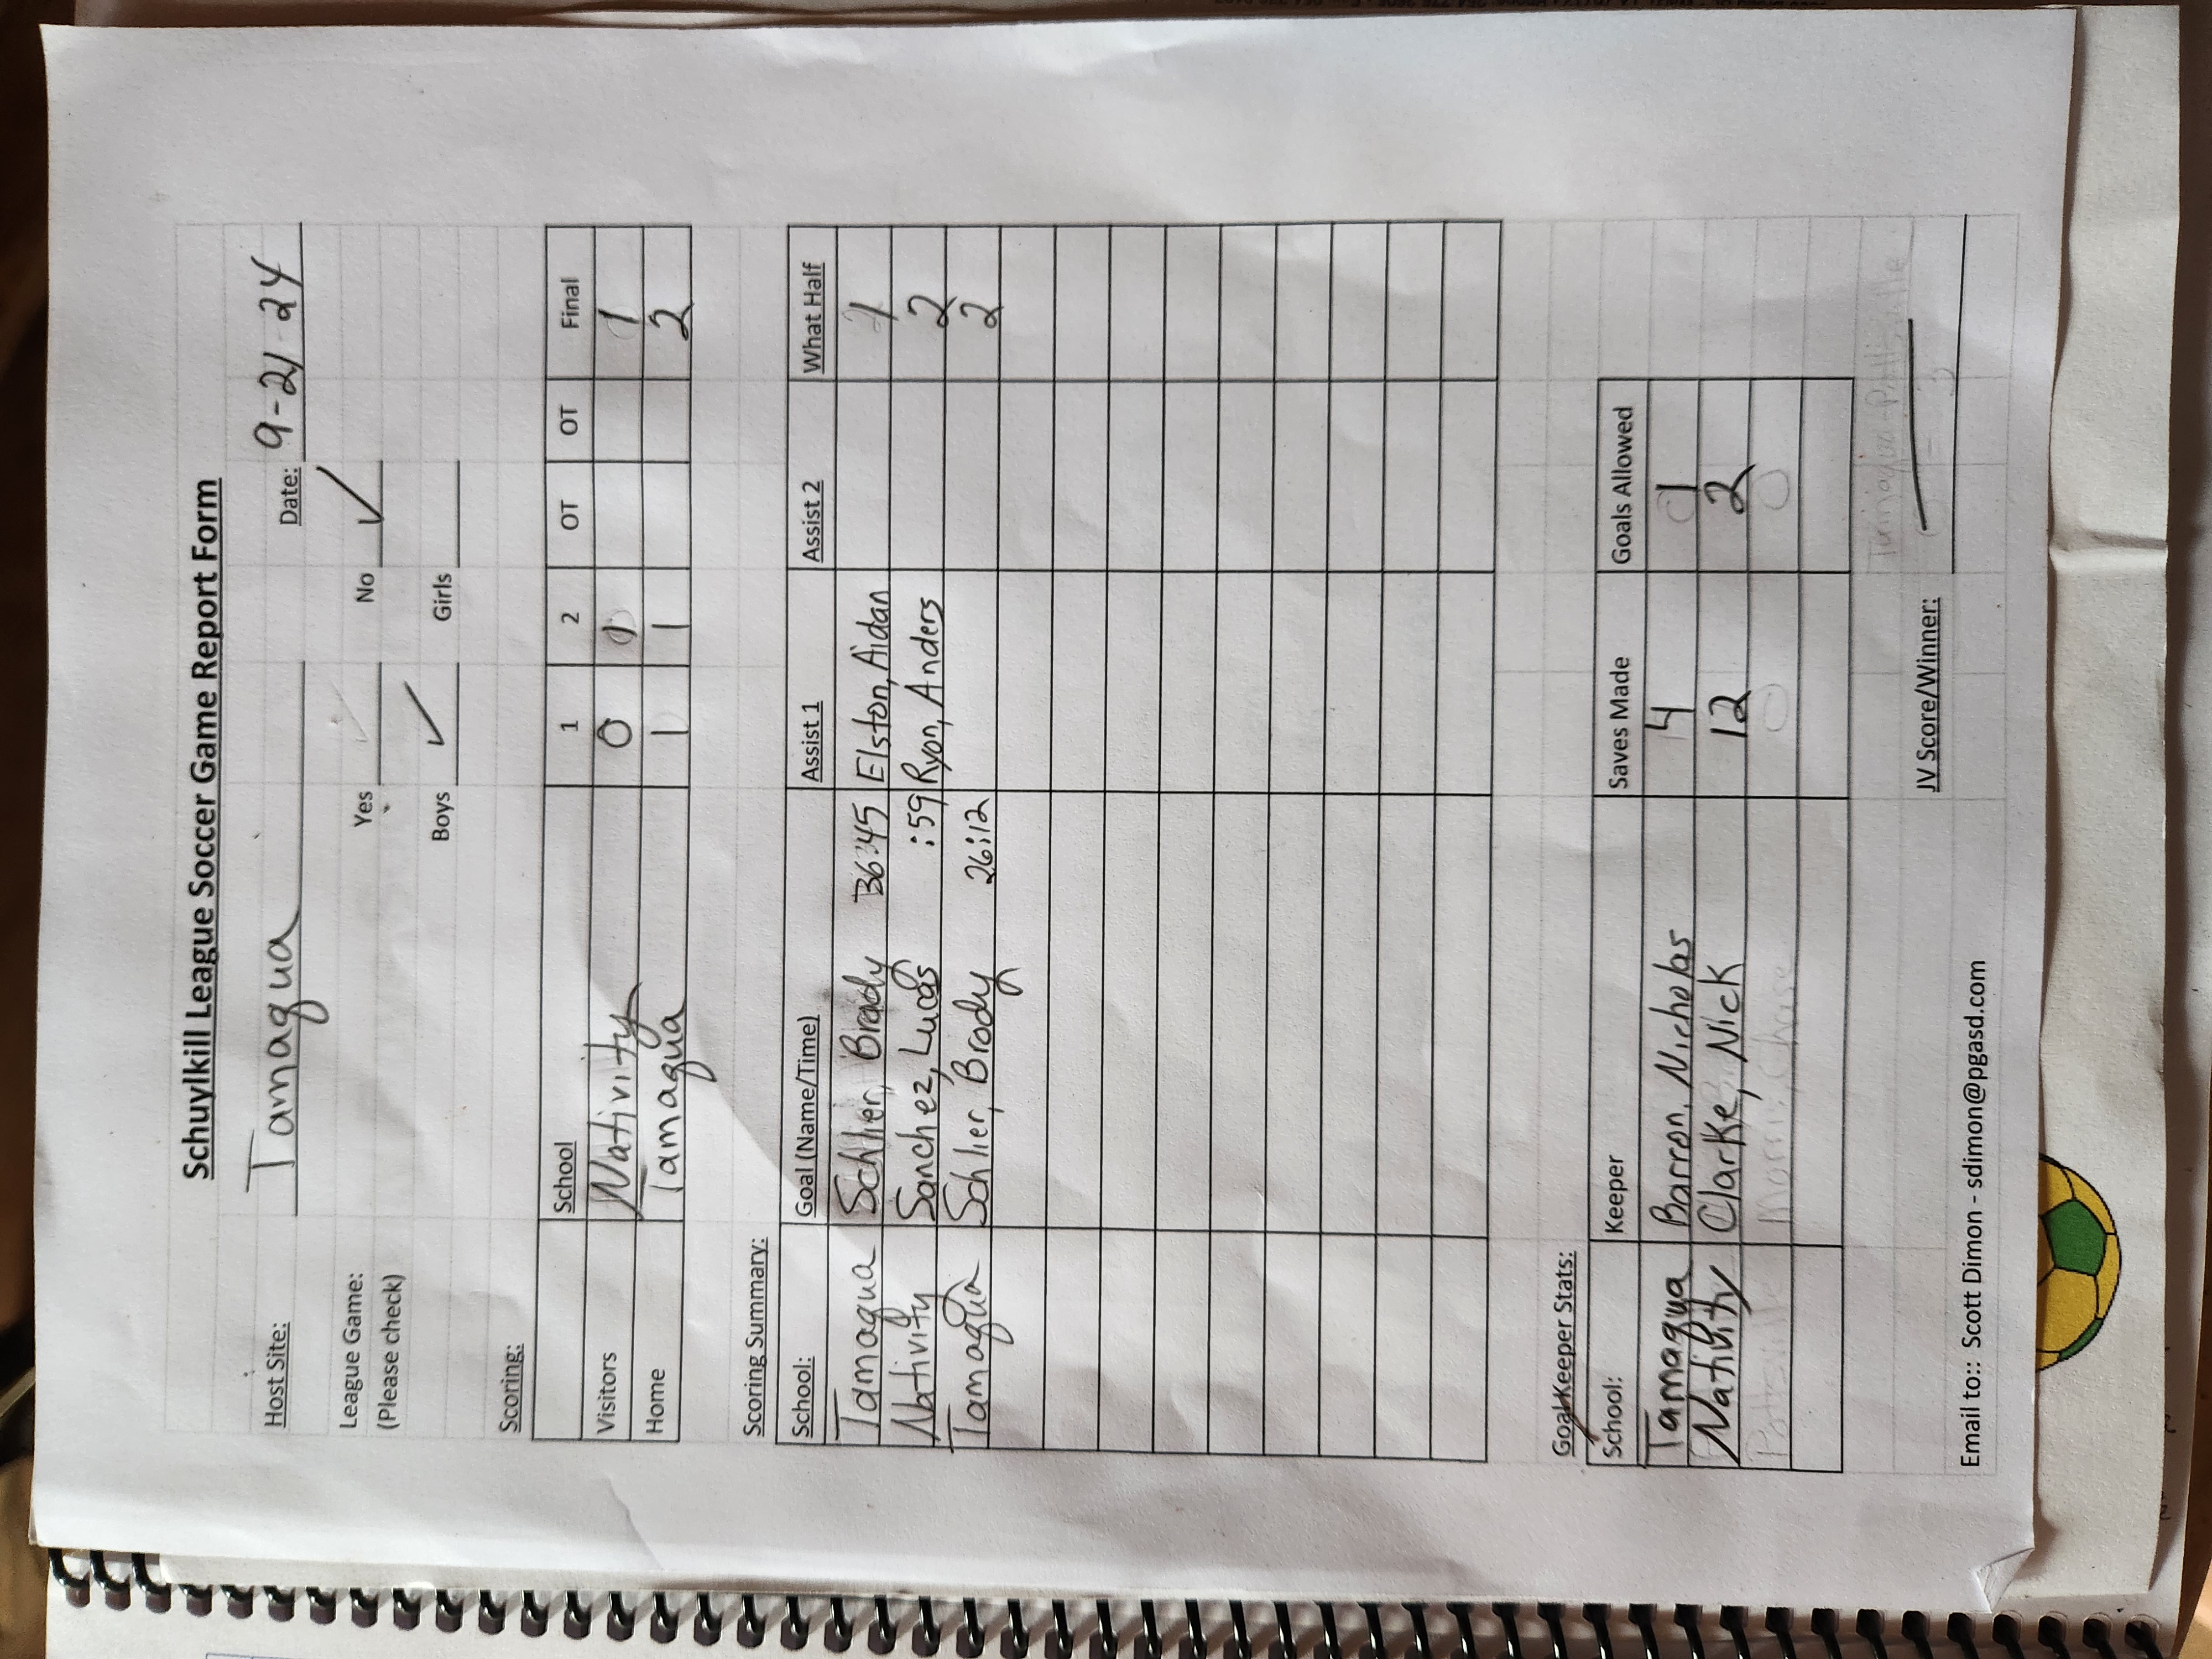 Schuylkill League Soccer Game Report Form
Host Site: Tamaqua Date: 9-21-24
League Game: Yes No ✓
(Please check)
Boys ✓ Girls
Scoring:
School 1 2 OT OT Final
Visitors Nativity 0 1 1
Home Tamaqua 1 1 2
Scoring Summary:
School: Goal (Name/Time) Assist 1 Assist 2 What Half
Tamaqua Schlier, Brady 36:45 Elston, Aidan 1
Nativity Sanchez, Lucas :59 Ryon, Anders 2
Tamaqua Schlier, Brody 26:12 2
Goal Keeper Stats:
School: Keeper Saves Made Goals Allowed
Tamaqua Barron, Nicholas 4 1
Nativity Clarke, Nick 12 2
JV Score/Winner:
Email to:: Scott Dimon - sdimon@pgasd.com